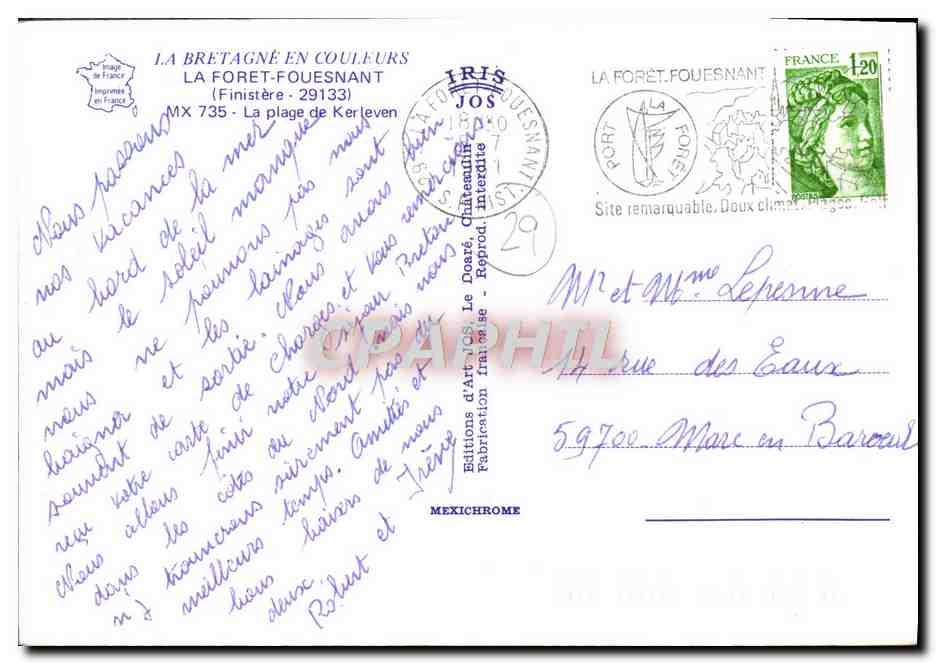 Image
de France
Imprimée
en France
LA BRETAGNE EN COULEURS
LA FORET-FOUESNANT
(Finistère - 29133)
MX 735 - La plage de Kerleven
Nous passons
nos vacances
au bord de la mer
mais le soleil manque
nous ne pouvons pas nous
baigner et les lainages sont
souvent de sortie. Nous avons bien
reçu votre carte de Charolles et vous remercions
Nous allons finir notre séjour Breton
dans les côtes du Nord mais nous
n'y trouverons sûrement pas du
meilleurs temps. Amitiés et
bons baisers de nous
deux
Robert et Irène
IRIS
JOS
Editions d'Art JOS, Le Doaré, Châteaulin
Fabrication française - Reprod. interdite
MEXICHROME
29 LA FORET FOUESNANT
S. FINIST.
29
LA FORÊT-FOUESNANT
PORT LA FORÊT
Site remarquable. Doux climat. Plages. Golf
FRANCE
1,20
POSTES
Mr et Mme Lepesme
14 rue des Eaux
59700 Marc en Baroeul
CPAPHIL